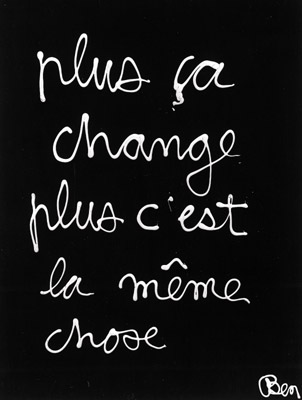 plus ça
change
plus c'est
la même
chose
Ben